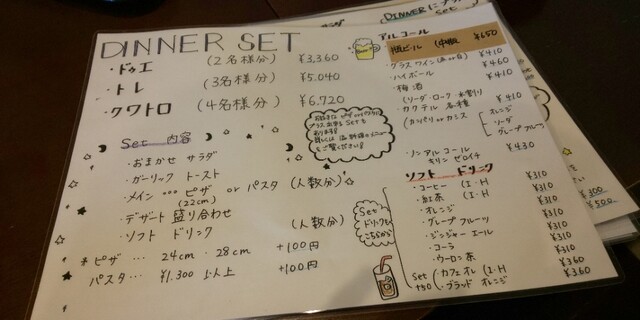 DINNER SET
・ドゥエ (2名様分) ¥3,360
・トレ (3名様分) ¥5,040
・クワトロ (4名様分) ¥6,720
Set 内容
・おまかせ サラダ
・ガーリック トースト
・メイン … ピザ or パスタ (人数分)
(22cm)
・デザート 盛り合わせ (人数分)
・ソフト ドリンク
* ピザ … 24cm・28cm +100円
パスタ … ¥1,300 以上 +100円
Set
ドリンクは
こちらから
アルコール
瓶ビール (中瓶) ¥650
・グラスワイン(赤 or 白) ¥410
・ハイボール ¥460
・梅酒 ¥410
(ソーダ・ロック・水割り)
・カクテル 各種 ¥410
(カンパリ or カシス
オレンジ
・ソーダ
グレープフルーツ
・ノンアルコール ¥430
キリン ゼロイチ
ソフト ドリンク
・コーヒー (I・H ¥310
・紅茶 (I・H ¥310
・オレンジ ¥310
・グレープ フルーツ ¥310
・ジンジャー エール ¥310
・コーラ ¥310
・ウーロン茶 ¥310
Set +50
・カフェオレ (I・H ¥360
・ブラッド オレンジ ¥360
DINNER に
Set
¥300
¥500